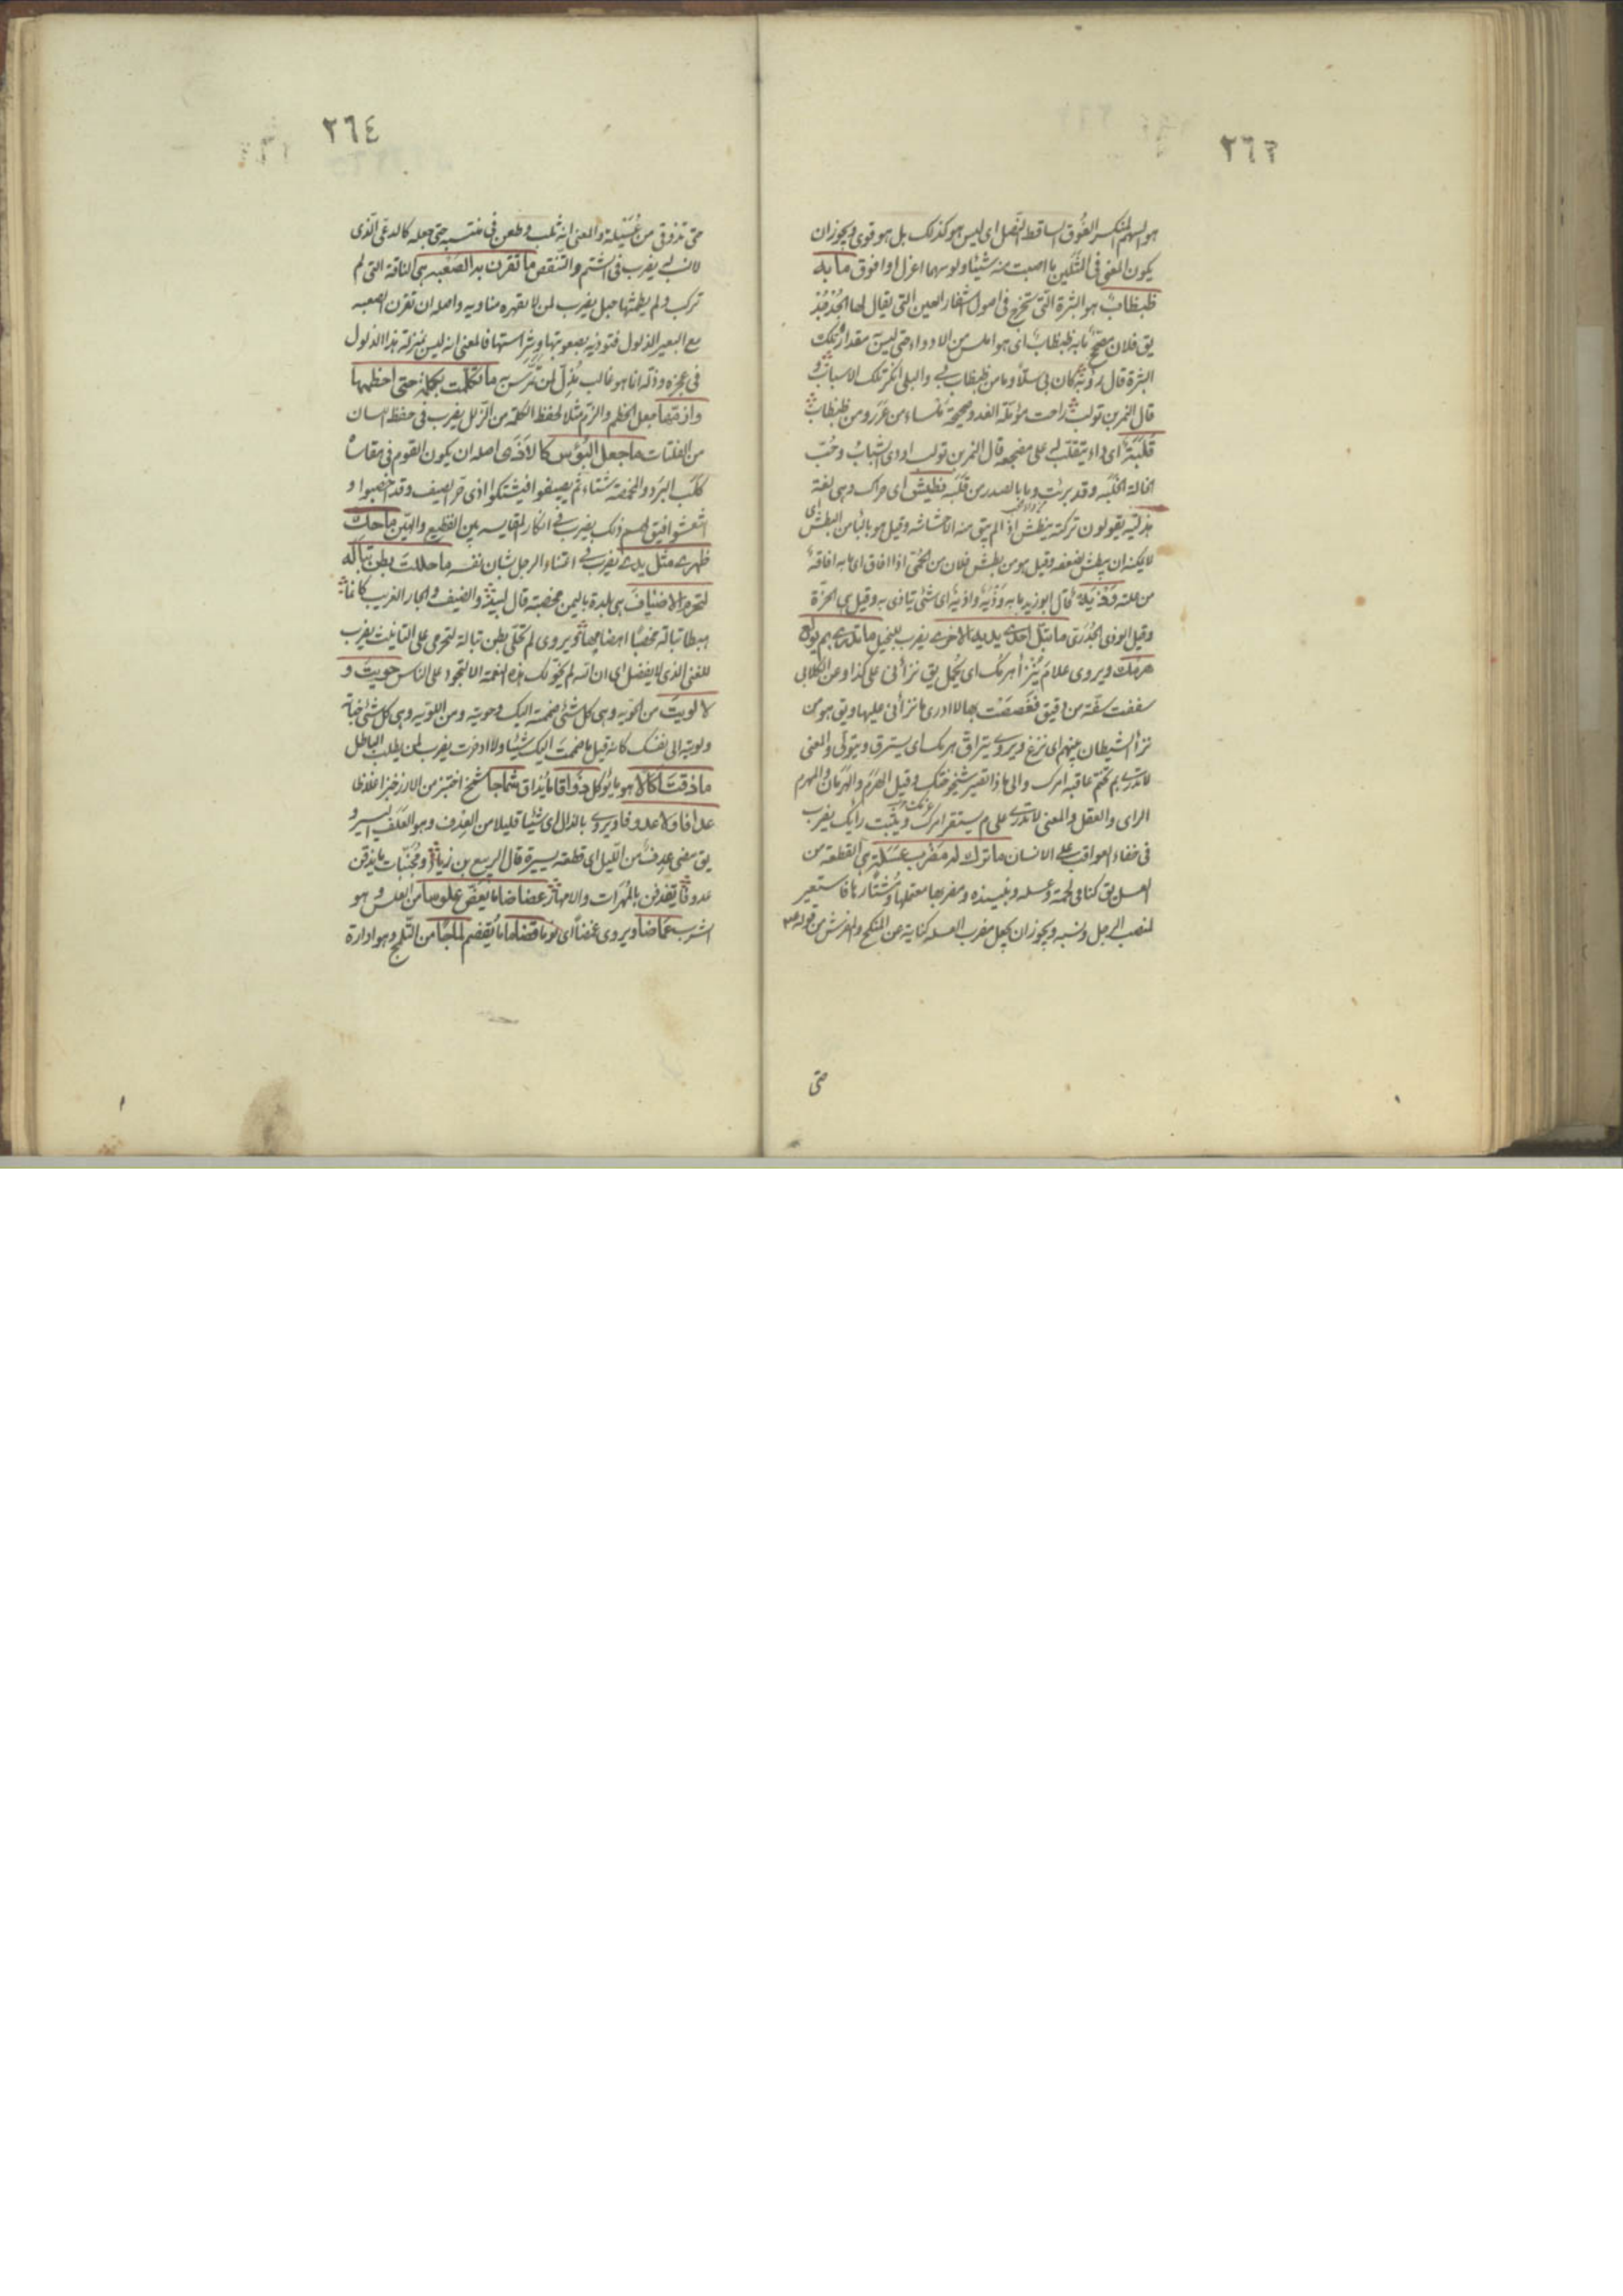 ٢٦٣
هو السهم المنكسر الفُوق الساقط النصل اى ليس هو كذلك بل هو قوى ويجوز ان
يكون المعنى فى المثلين ما اصبت منه شيئا ولو سهما اعزل او افوق ما به
ظبظابٌ هو البثرة التى تخرج فى اصول اشفار العين التى يقال لها الجُدجُد
يق فلان مصحّ ما به ظبظاب اى هو املس من الادواء حتى ليست مقدار تلك
البثرة قال رؤبة كان بى سلًّا وما من ظبظاب بى والبلى انكر تلك الاسباب و
قال النمر بن تولب راحت مؤتلة الغد وصحيحة من ظبظاب
قَلَبَةٌ اى داء يتقلب له على مضجعه قال النمر بن تولب اودى الشباب وحُبّ
الخالة الخَلَبه وقد برئت وما بالصدر من قَلَبه نطيش اى حراك وهى لغة
هذلية يقولون تركته ينطش اذا لم يبق منه الا حشاشة وقيل هو بالباء من البطش اى
لا يمكنه ان يبطش لضعفه وقيل هو من بطش فلان من الحُمّى اذا افاق اى ما به افاقة
من علته وَذْيَةٌ قال ابو زيد ما به وَذْيَة واذية اى شئ يتأذى به وقيل هى الحزة
وقيل الوذى الخُدَرَى ما تبلّ احدى يديه الاخرى يضرب للبخيل ما تدرى بم يولع
هرمك ويروى علامَ يُنزأ هرمك اى يُحمل يق نزأنى على كذا وعن الكلابى
سففت سفّة من دقيق فغَصَصْت بها لا ادرى ما نزأنى عليها ويق هو من
نزأ الشيطان بينهم اى نزغ ويروى يتراق هرمك اى يسترق ويتولى والمعنى
لا تدرى بم تختم عاقبة امرك والى ماذا تصير شيخوختك وقيل الهَرَم والهَرْمان والمهرم
الراى والعقل والمعنى لا تدرى على م يستقر امرك ويثبت رأيك يضرب
فى خفاء العواقب على الانسان ما ترك له مَضْرِب عَسَلَة هى القطعة من
العسل يق كنا فى لحمة وعسله ونبيذه ومضربها معتملها ومُشتار ها فاستعير
لمنصب الرجل ونسبه ويجوز ان يجعل مضرب العسله كناية عن المنكح والمفرش من قوله عم
حتى
٢٦٤
حتى تذوقى من عُسَيْلته والمعنى انه ثلب وطعن فى منتسبه حتى جعله كالدعى الذى
لا نسب له يضرب فى الشتم والتنقص ما تقرن به الصَّعْبه هى الناقة التى لم
تركب ولم يطمثها حبل يضرب لمن لا يقهره مناويه واصله ان تقرن الصعبه
مع البعير الذلول فتوذيه بصعوبتها وشراستها فالمعنى انه ليس بمنزلة هذا الذلول
فى عجزه وذله انما هو غالب مُذِلّ لمن تمرّس به ما تكلمت بكلمة حتى اخطمها
وازمّها جعل الخطم والزم مثلا لحفظ الكلمة من الزلل يضرب فى حفظ اللسان
من الفلتات ما جعل البُؤس كالاذَى اصله ان يكون القوم فى مقاساة
كَلَب البرد والمخمصة شتاء ثم يصيفوا فيشتكوا اذى حر الصيف وقد اخصبوا و
انتعشوا فيق لهم ذلك يضرب فى انكار المقايسه بين الفظيع والهيّن ما حك
ظهرى مثل يدى يضرب فى اعتناء الرجل بشان نفسه ما حللت بطن تباله
لتحرم الاضياف هى بلدة باليمن مخصبة قال لبيد والضيف والجار الغريب كانما
هبطا تبالة مخصبًا اهضامها ويروى لم تحلّى بطن تبالة لتحرمى على التانيث يضرب
للغنى الذى لا يفضل اى ان الله لم يخوّلك هذه النعمة الا لتجود على الناس حويتَ و
لا لويتَ من الحويه وهى كل شئ ضممته اليك وحويته ومن اللويه وهى كل شئ خبأته
ولويته الى نفسك كانه قيل ما ضممت اليك شيئا ولا ادخرت يضرب لمن يطلب الباطل
ما ذقت اكالا هو ما يؤكل ذواقا ما يُذاق شماجا شمج اختبز من الارز خبزا غلاظا
عدافا ولا عدوفا ويروى بالذال اى شيئا قليلا من العدف وهو العلف اليسير و
يق مضى عِدفٌ من الليل اى قطعة يسيرة قال الربيع بن زياد ومُجَنَّبات ما يذقن
عدوفا يقذفن بالمُهَرات والامهار عضاضا ما يُعَضّ علوسا من العلس وهو
الشرب غماضا ويروى غمضاً اى نوما قضاما ما يُقضم لماجًا من التلمج وهو ادارة